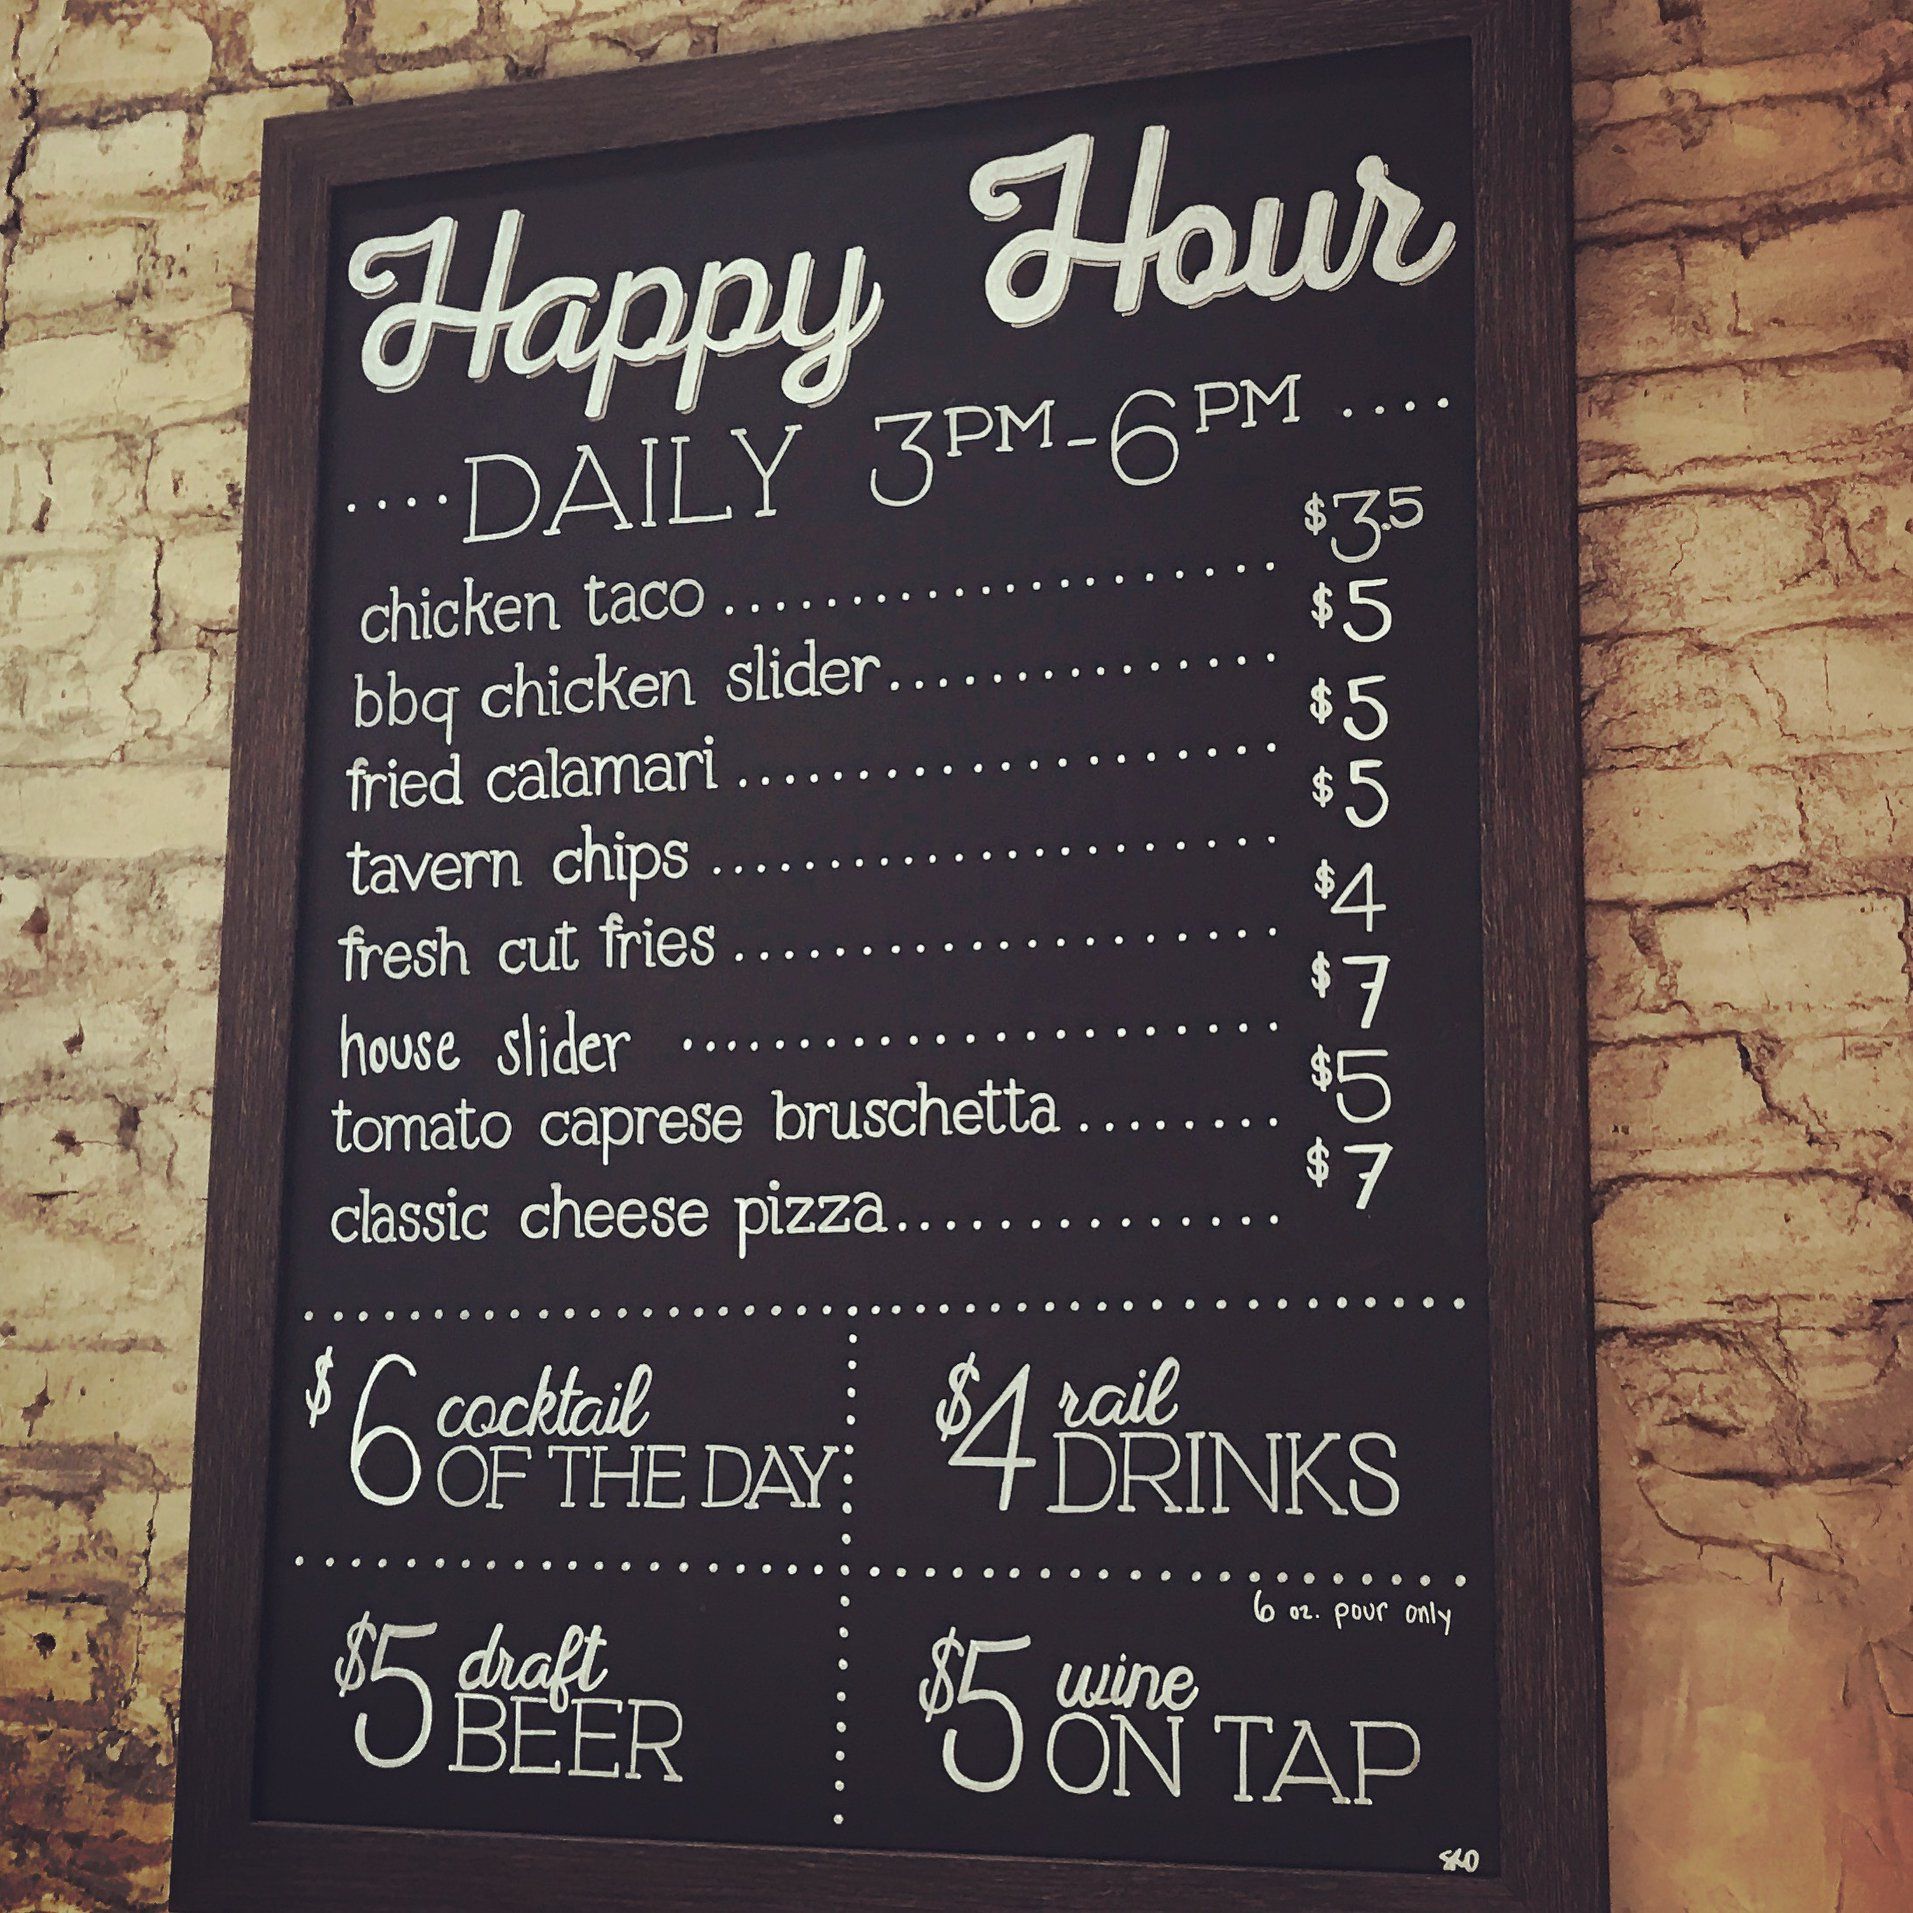 Happy Hour
....DAILY 3PM-6PM....
chicken taco ..................... $3.5
bbq chicken slider............... $5
fried calamari .................... $5
tavern chips ...................... $5
fresh cut fries .................... $4
house slider ...................... $7
tomato caprese bruschetta ........ $5
classic cheese pizza............... $7
$6 cocktail
OF THE DAY
$4 rail
DRINKS
$5 draft
BEER
6 oz. pour only
$5 wine
ON TAP